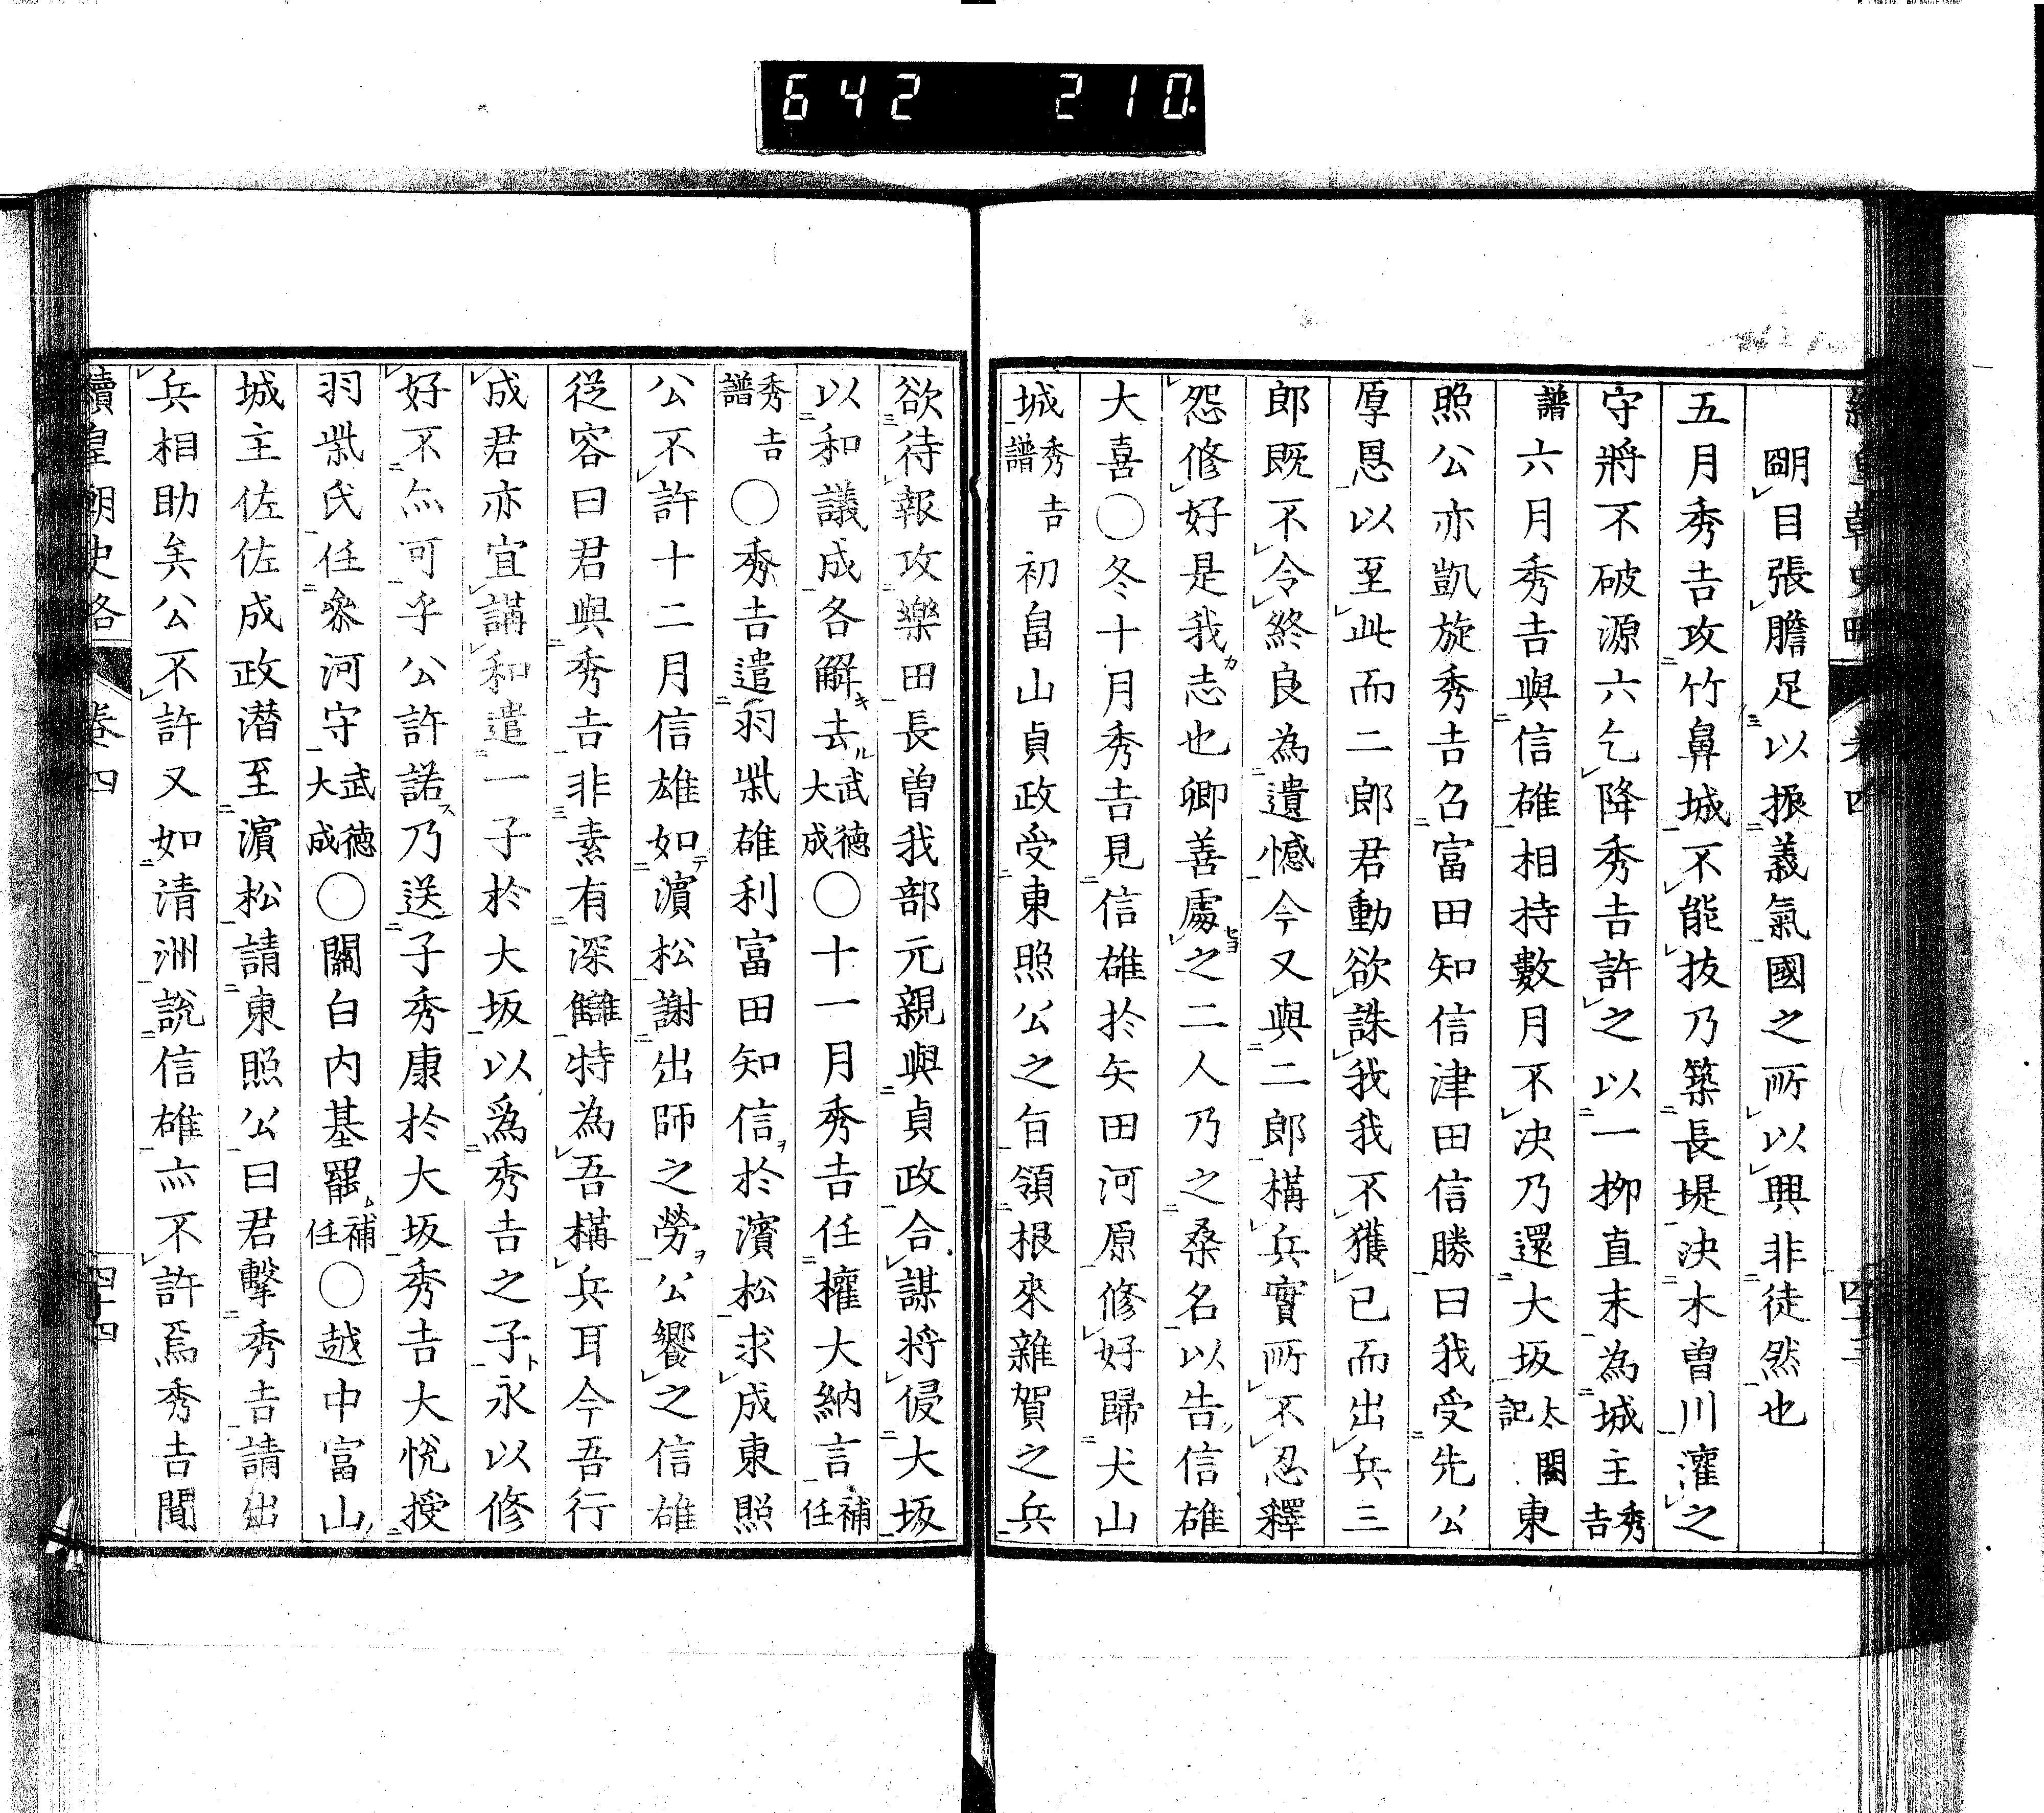 642 210
明目張膽足以振義氣國之所以興非徒然也
五月秀吉攻竹鼻城不能拔乃築長堤決木曽川灌之
守將不破源六乞降秀吉許之以一柳直末為城主秀吉
譜六月秀吉與信雄相持數月不決乃還大坂太閤記東
照公亦凱旋秀吉召富田知信津田信勝曰我受先公
厚恩以至此而二郎君動欲誅我我不獲已而出兵三
郎既不令終良為遺憾今又與二郎構兵實所不忍釋
怨修好是我志也卿善處之二人乃之桑名以告信雄
大喜〇冬十月秀吉見信雄於矢田河原修好歸犬山
城秀吉譜初畠山貞政受東照公之旨領根來雜賀之兵
欲待報攻樂田長曽我部元親與貞政合謀将侵大坂
以和議成各解キ去ル武德大成〇十一月秀吉任權大納言補任
秀吉譜〇秀吉遣羽柴雄利富田知信ヲ於濱松求成東照
公不許十二月信雄如テ濱松謝出師之勞ヲ公饗之信雄
從容曰君與秀吉非素有深讎特為吾構兵耳今吾行
成君亦宜講和遣一子於大坂以爲秀吉之子ト永以修
好不亦可乎公許諾ス乃送子秀康於大坂秀吉大悅授
羽柴氏任參河守武德大成〇關白内基罷ム補任〇越中富山ノ
城主佐佐成政潜至濵松請東照公曰君擊秀吉請出
兵相助矣公不許又如清洲説信雄亦不許焉秀吉聞
續皇朝史略 卷四 四十四